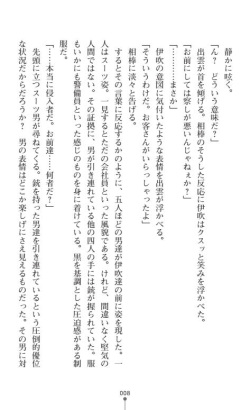 静かに呟く。
「ん? どういう意味だ?」
出雲が首を傾げる。相棒のそうした反応に伊吹はクスッと笑みを浮かべた。
「お前にしては察しが悪いんじゃねぇか?」
「………まさか」
伊吹の意図に気付いたような表情を出雲が浮かべる。
「そういうわけだ。お客さんがいらっしゃったよ」
相棒に淡々と告げる。
するとその言葉に反応するかのように、五人ほどの男達が伊吹達の前に姿を現した。一
人はスーツ姿。一見するとただの会社員といった風貌である。けれど、間違いなく堅気の
人間ではない。その証拠に、男が引き連れている他の四人の手には銃が握られていた。服
もいかにも警備員といった感じのものを身に着けている。黒を基調とした圧迫感がある制
服だ。
「…本当に侵入者だな。お前達……何者だ?」
先頭に立つスーツ男が尋ねてくる。銃を持った男達を引き連れているという圧倒的優位
な状況だからだろうか? 男の表情はどこか楽しげにさえ見えるものだった。その男に対
008